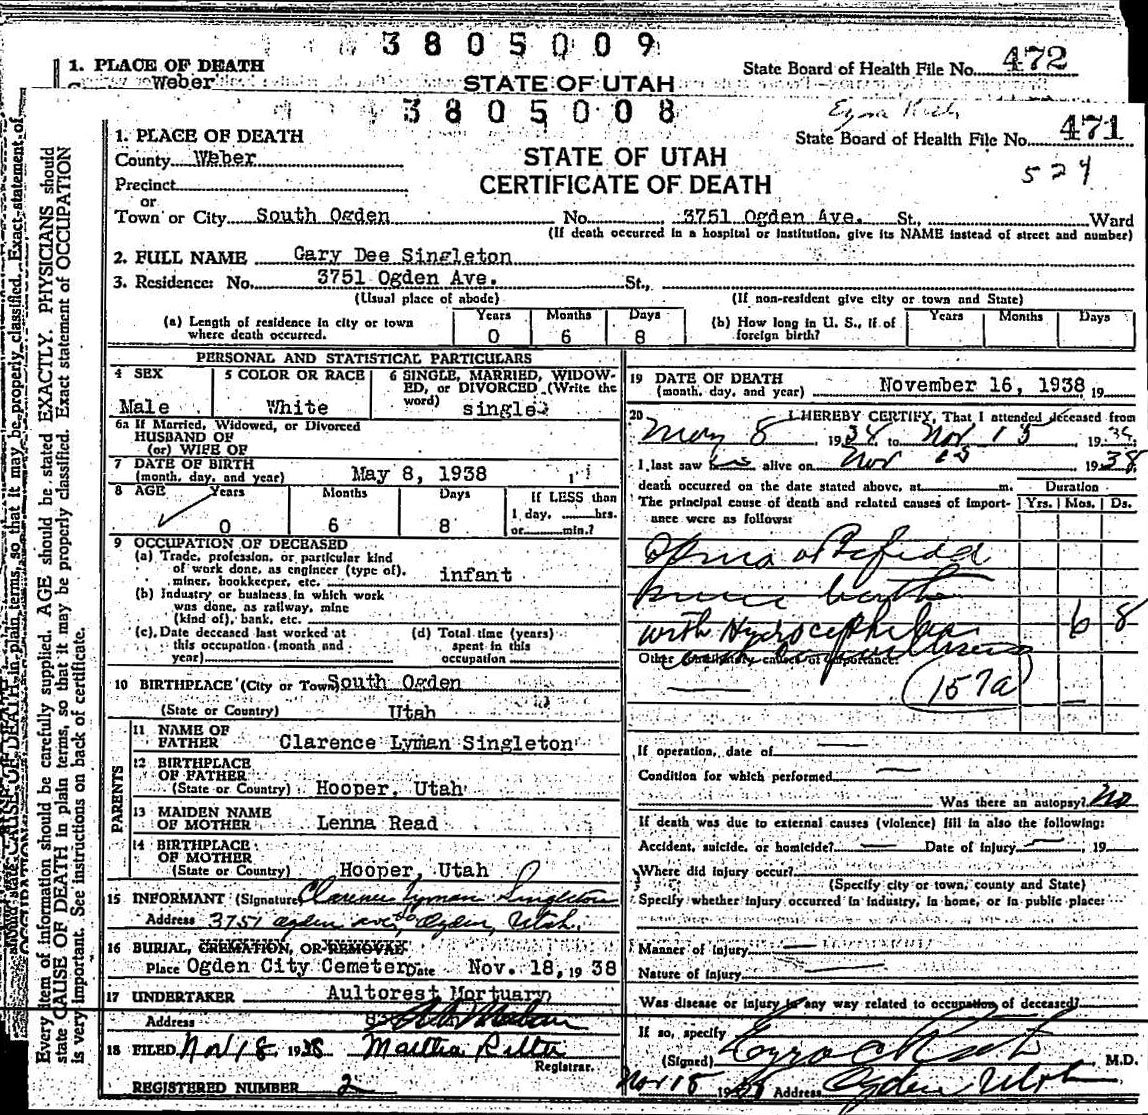 3805009
472
1. PLACE OF DEATH
State Board of Health File No.
Weber
STATE OF UTAH
3805008
471
1. PLACE OF DEATH
State Board of Health File No.
County Weber
STATE OF UTAH
524
Precinct
CERTIFICATE OF DEATH
or
Town or City South Ogden No. 3751 Ogden Ave. St. Ward
(If death occurred in a hospital or institution, give its NAME instead of street and number)
2. FULL NAME Gary Dee Singleton
3. Residence: No. 3751 Ogden Ave. St.,
(Usual place of abode) (If non-resident give city or town and State)
(a) Length of residence in city or town where death occurred. Years 0 Months 6 Days 8
(b) How long in U. S., if of foreign birth? Years Months Days
PERSONAL AND STATISTICAL PARTICULARS
4 SEX
Male
5 COLOR OR RACE
White
6 SINGLE, MARRIED, WIDOWED, OR DIVORCED (Write the word) single
6a If Married, Widowed, or Divorced
HUSBAND OF
(or) WIFE OF
7 DATE OF BIRTH
(month, day, and year) May 8, 1938
8 AGE Years 0 Months 6 Days 8
If LESS than
1 day, hrs.
or min.?
9 OCCUPATION OF DECEASED
(a) Trade, profession, or particular kind
of work done, as engineer (type of),
miner, bookkeeper, etc. infant
(b) Industry or business in which work
was done, as railway, mine
(kind of), bank, etc.
(c) Date deceased last worked at
this occupation (month and
year)
(d) Total time (years)
spent in this
occupation
10 BIRTHPLACE (City or Town) South Ogden
(State or Country) Utah
PARENTS
11 NAME OF
FATHER Clarence Lyman Singleton
12 BIRTHPLACE
OF FATHER
(State or Country) Hooper, Utah
13 MAIDEN NAME
OF MOTHER Lenna Read
14 BIRTHPLACE
OF MOTHER
(State or Country) Hooper, Utah
15 INFORMANT (Signature) Clarence Lyman Singleton
Address 3751 Ogden ave, Ogden, Utah.
16 BURIAL, CREMATION, OR REMOVAL
Place Ogden City Cemetery Date Nov. 18, 1938
17 UNDERTAKER Aultorest Mortuary
Address
18 FILED Nov 18 1938 Martha Ritter
Registrar.
REGISTERED NUMBER 2
19 DATE OF DEATH
(month, day, and year) November 16, 1938 19
20 I HEREBY CERTIFY, That I attended deceased from
May 8 1938 to Nov 15 1938
I last saw him alive on Nov 15 1938
death occurred on the date stated above, at m.
Duration
The principal cause of death and related causes of importance were as follows:
Yrs. Mos. Ds.
Spina Bifida
since birth
with Hydrocephalus 6 8
Other contributory causes of importance:
157a
If operation, date of
Condition for which performed
Was there an autopsy? No
If death was due to external causes (violence) fill in also the following:
Accident, suicide, or homicide? Date of Injury , 19
Where did injury occur?
(Specify city or town, county and State)
Specify whether injury occurred in industry, in home, or in public place:
Manner of Injury
Nature of Injury
Was disease or injury in any way related to occupation of deceased?
If so, specify
(Signed) M.D.
Nov 18 1938 Address Ogden Utah
Every item of information should be carefully supplied. AGE should be stated EXACTLY. PHYSICIANS should
state CAUSE OF DEATH in plain terms, so that it may be properly classified. Exact statement of OCCUPATION
is very important. See instructions on back of certificate.